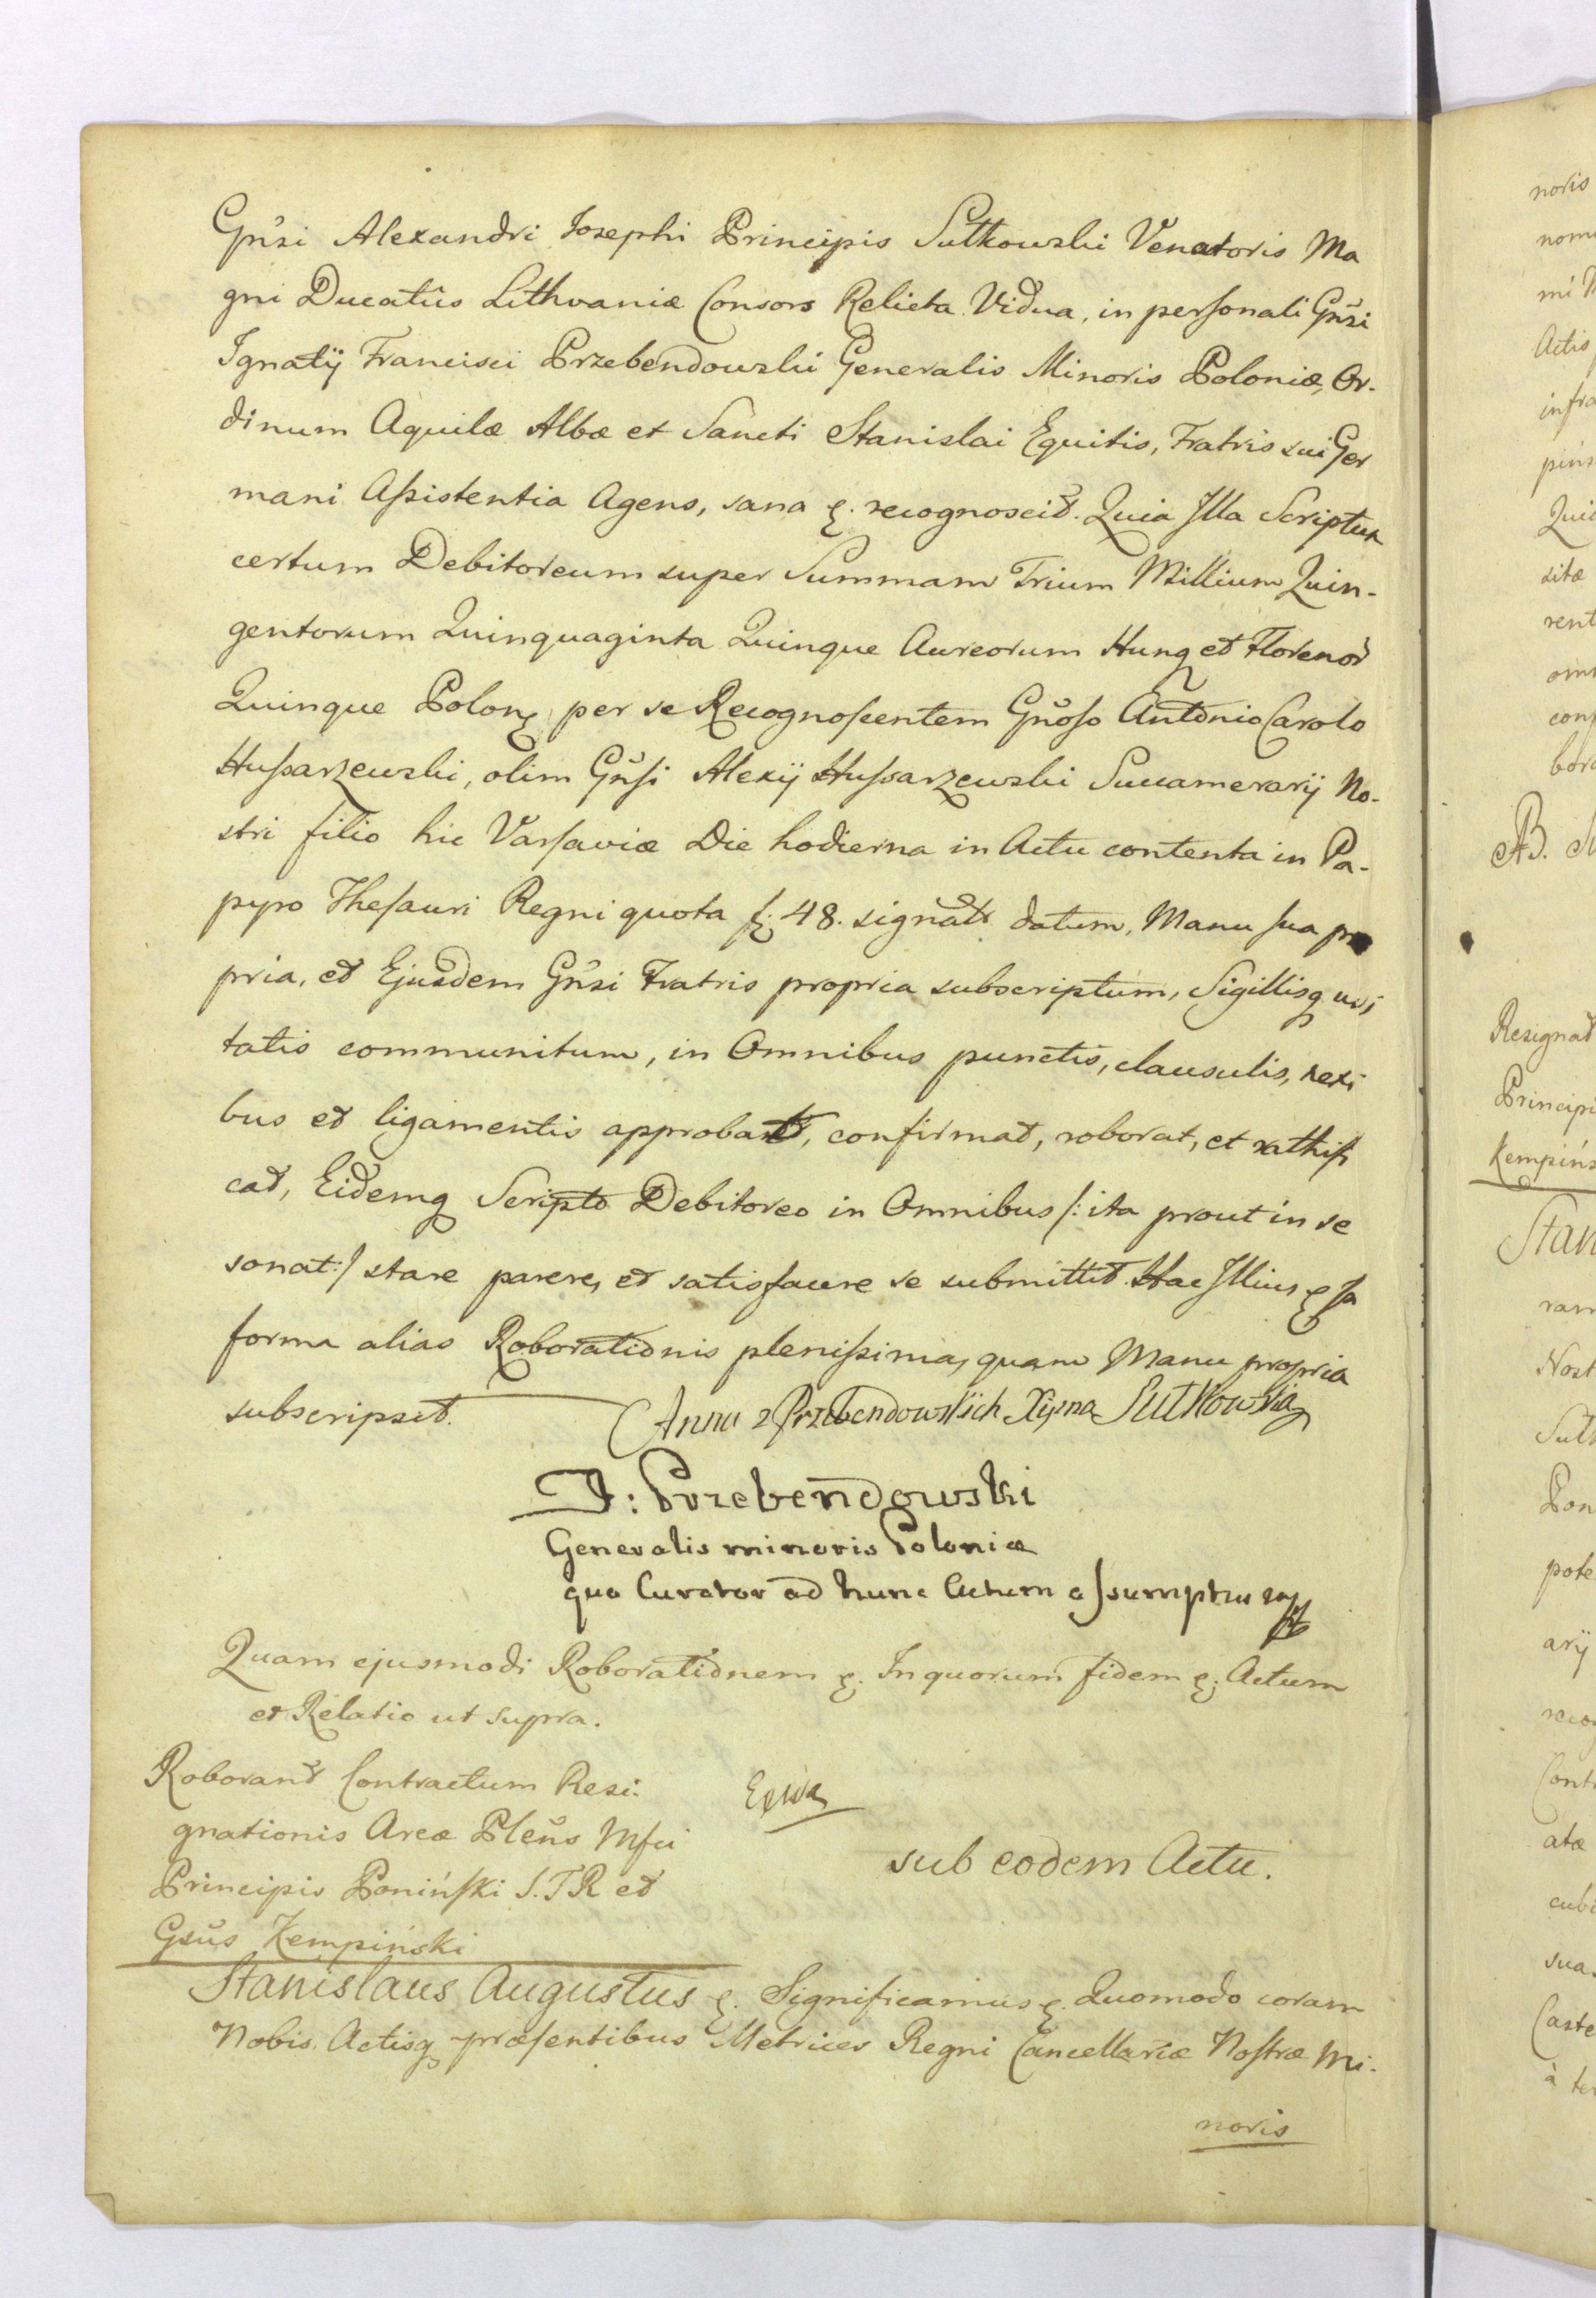 Gn̆si Alexandri Josephi Principis Sułkowski Venatoris Ma
gni Ducatûs Lithvaniæ Consors Relicta Vidua, in personali Gn̆si
Ignatij Francisci Przebendowski Generalis Minoris Poloniæ, Or-
dinum Aquilæ Albæ et Sancti Stanislai Equitis, Fratris sui Ger
mani Assistentia Agens, sana &. recognoscit. Quia Illa Scriptum
certum Debitoreum super Summam Trium Millium Quin-
gentorum Quinquaginta Quinque Aureorum Hung et Florenor̆
Quinque Polon, per se Recognoscentem Gn̆oso Antonio Carolo
Hussarzewski, olim Gn̆si Alexij Hussarzewski Succamerarij No-
stri filio hic Varsaviæ Die hodierna in Actu contenta in Pa-
pyro Thesauri Regni quota f. 48. signat̆ datum, Manu sua pro
pria, et Ejusdem Gn̆si Fratris propria subscriptum, Sigillisq usi
tatis communitum, in Omnibus punctis, clausulis, nexi
bus et ligamentis approbat, confirmat, roborat, et rathifi
cat, Eidemq Scripto Debitoreo in Omnibus /: ita prout in se
sonat :/ stare parere, et satisfacere se submittit. Hac Illius &
forma alias Roborationis plenissima, quam Manu propria
subscripsit.
Anna z Przebendowskich Xiężna Sułkowska
I: Przebendowski
Generalis minoris Poloniæ
qua Curator ad hunc Actum assumptus
Quam ejusmodi Roborationem &. In quorum fidem &. Actum
et Relatio ut supra.
Roborant̆ Contractum Resi:
gnationis Areæ Plen̆s Mfci
Principis Poniński S.T.R et
Gsŭs Kempiński
sub eodem Actu.
Stanislaus Augustus &. Significamus &. Quomodo coram
Nobis. Actisq præsentibus Metrices Regni Cancellariæ Nostræ Mi-
noris